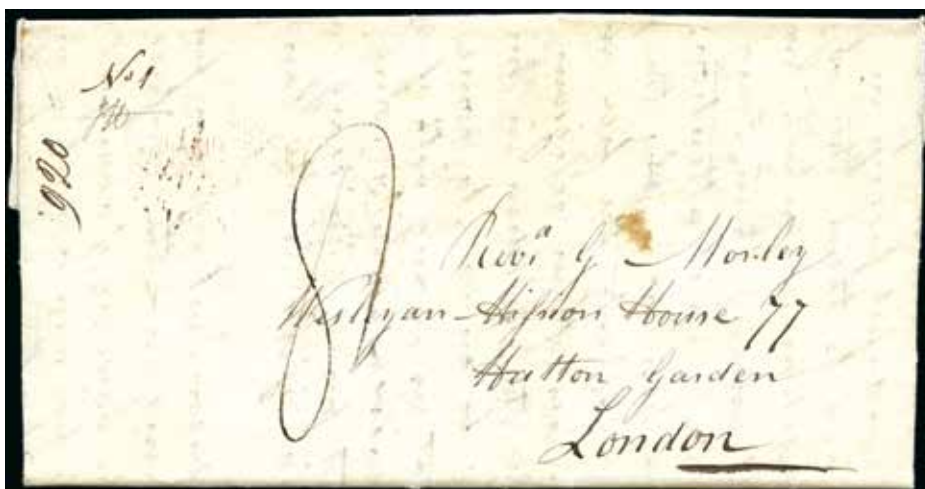 No 1
920
8
Revd G Morley
Wesleyan Mission House 77
Hatton Garden
London